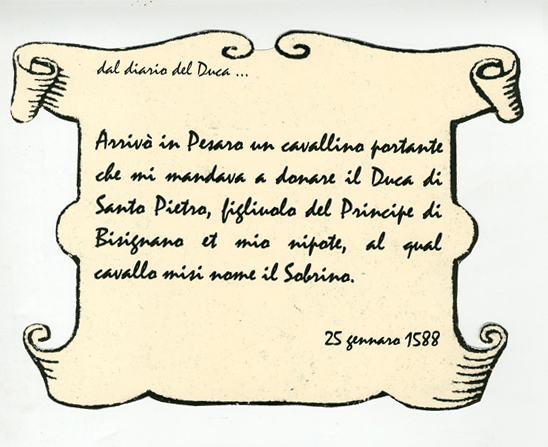 dal diario del Duca ...
Arrivò in Pesaro un cavallino portante
che mi mandava a donare il Duca di
Santo Pietro, figliuolo del Principe di
Bisignano et mio nipote, al qual
cavallo misi nome il Sobrino.
25 gennaro 1588